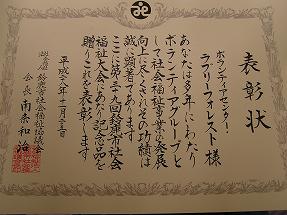 表彰状
ボランティアセンター
ラブリーフォレスト 様
あなたは多年にわたり
ボランティアグループと
して社会福祉事業の発展
向上に尽くされその功績は
誠に顕著であります
ここに第三十九回鈴鹿市社会
福祉大会にあたり記念品を
贈りこれを表彰します
平成二十八年十一月二十三日
鈴鹿市社会福祉協議会
会長 南条和治